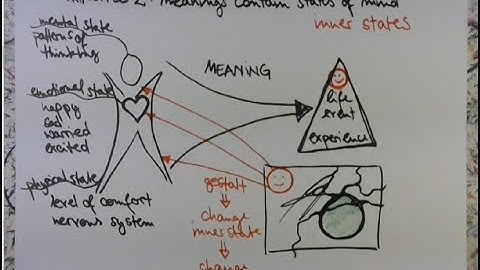 2: meanings contain states of mind
inner states
mental state
patterns of
thinking
MEANING
emotional state
happy
sad
worried
excited
life
event
experience
physical state
level of comfort
nervous system
gestalt
change
inner state
change